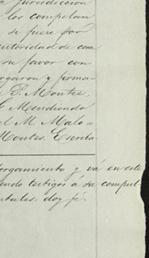 jurisdiccion
los competan
de fuero por
autoridad de cosa
su favor con
ogaron y firma
E. Montes
Mendiendo
el M. Malo
Montes. Escriba
orgamiento y vá en este
endo testigos á su cumpul
tales. doy fé.